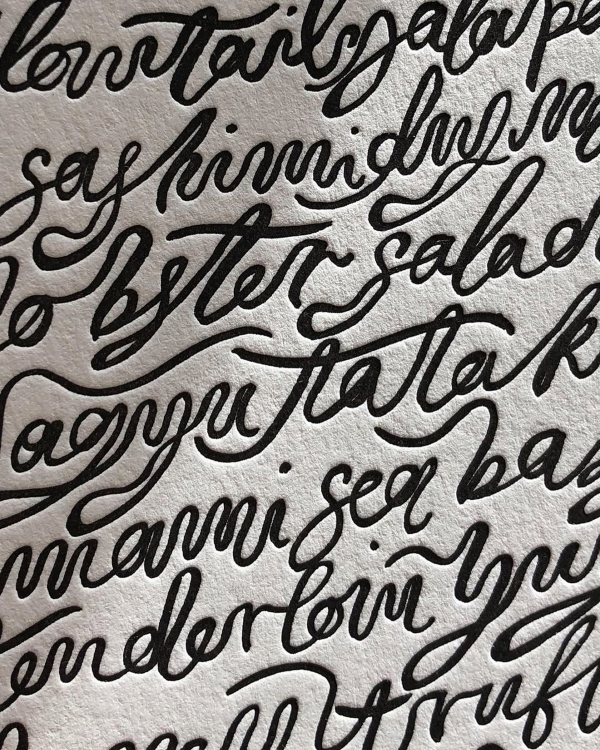 lowtail jalape
sashimi dry m
lobster salad
agyu tatak
mami sea bas
tenderloin yu
truf